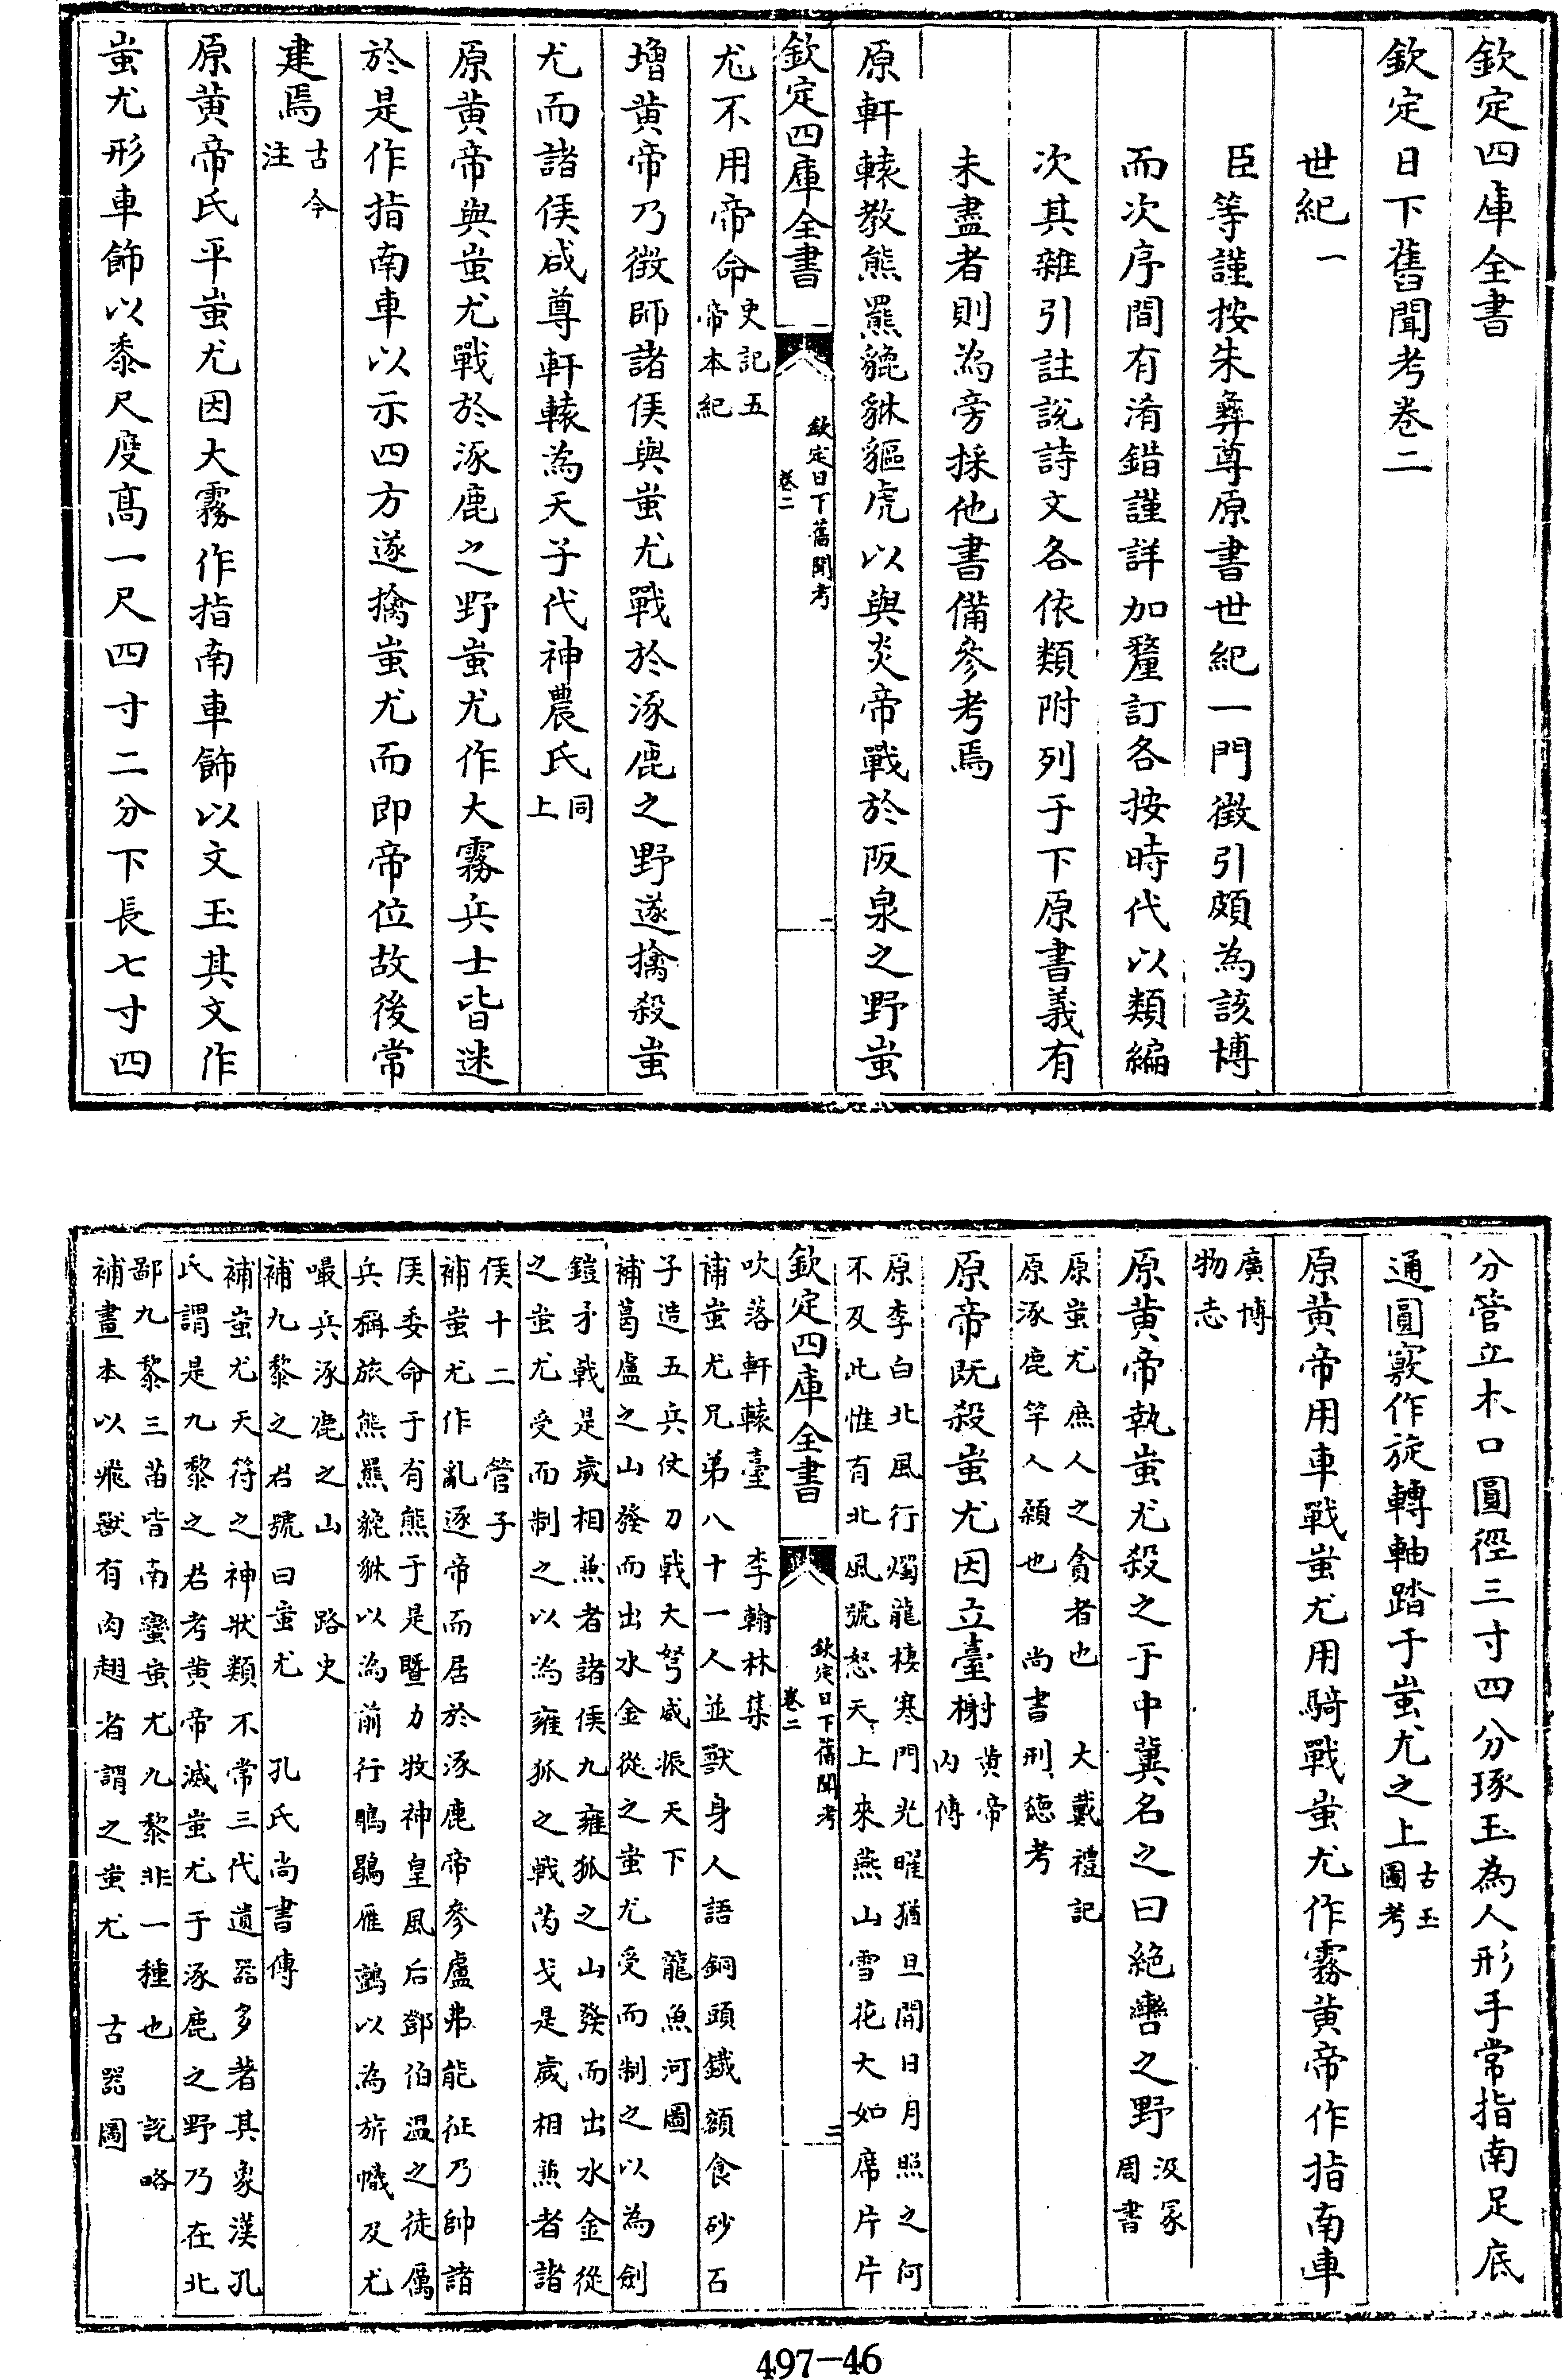 欽定四庫全書
欽定日下舊聞考卷二
世紀一
臣等謹按朱彝尊原書世紀一門徵引頗為該博
而次序間有淆錯謹詳加釐訂各按時代以類編
次其雜引註說詩文各依類附列于下原書義有
未盡者則為旁採他書備參考焉
原軒轅教熊羆貔貅貙虎以與炎帝戰於阪泉之野蚩
欽定四庫全書
欽定日下舊聞考
卷二
一
尤不用帝命史記五
帝本紀
增黄帝乃徴師諸侯與蚩尤戰於涿鹿之野遂擒殺蚩
尤而諸侯咸尊軒轅為天子代神農氏同
上
原黄帝與蚩尤戰於涿鹿之野蚩尤作大霧兵士皆迷
於是作指南車以示四方遂擒蚩尤而即帝位故後常
建焉古今
注
原黄帝氏平蚩尤因大霧作指南車飾以文玉其文作
蚩尤形車飾以黍尺度髙一尺四寸二分下長七寸四
分管立木口圓徑三寸四分琢玉為人形手常指南足底
通圓竅作旋轉軸踏于蚩尤之上古玉
圖考
原黄帝用車戰蚩尤用騎戰蚩尤作霧黄帝作指南車
廣博
物志
原黄帝執蚩尤殺之于中冀名之曰絶轡之野汲冢
周書
原蚩尤庶人之貪者也 大戴禮記
原涿鹿竿人顙也 尚書刑徳考
原帝既殺蚩尤因立臺榭黄帝
内傳
原李白北風行燭龍棲寒門光曜猶旦開日月照之何
不及此惟有北風號怒天上來燕山雪花大如席片片
欽定四庫全書
欽定日下舊聞考
卷二
二
吹落軒轅臺 李翰林集
補蚩尤兄弟八十一人並獸身人語銅頭鐵額食砂石
子造五兵仗刀戟大弩威振天下 龍魚河圖
補葛盧之山發而出水金從之蚩尤受而制之以為劍
鎧矛戟是歲相兼者諸侯九雍狐之山發而出水金從
之蚩尤受而制之以為雍狐之戟芮戈是歲相兼者諸
侯十二 管子
補蚩尤作亂逐帝而居於涿鹿帝參盧弗能征乃帥諸
侯委命于有熊于是暨力牧神皇風后鄧伯温之徒厲
兵稱旅熊羆貔貅以為前行鵰鶡雁鷀以為旂幟及尤
嘬兵涿鹿之山 路史
補九黎之君號曰蚩尤 孔氏尚書傳
補蚩尤天符之神狀類不常三代遺器多著其象漢孔
氏謂是九黎之君考黄帝滅蚩尤于涿鹿之野乃在北
鄙九黎三苗皆南蠻蚩尤九黎非一種也 說略
補畫本以飛獸有肉翅者謂之蚩尤 古器圖
497-46